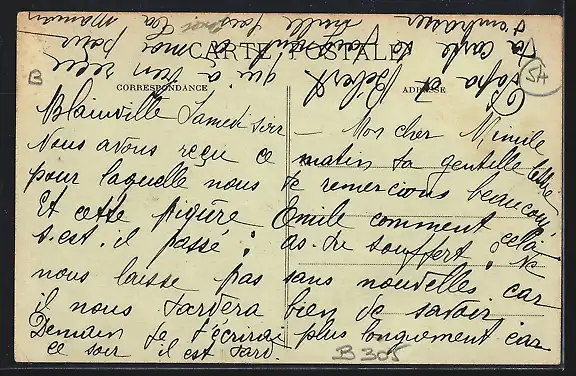 CARTE POSTALE
CORRESPONDANCE
ADRESSE
B
54
Blainville Samedi soir — Mon cher Mimile
Nous avons reçu ce matin ta gentille lettre
pour laquelle nous te remercions beaucoup
Et cette piqûre Emile comment cela
s'est-il passé ; as-tu souffert ; Ne
nous laisse pas sans nouvelles car
il nous tardera bien de savoir
Demain je t'écrirai plus longuement car
ce soir il est tard.
Papa et Bébert
qui a bien reçu
ta carte se joignent à moi pour
t'embrasser mille fois Ta Maman
B 305